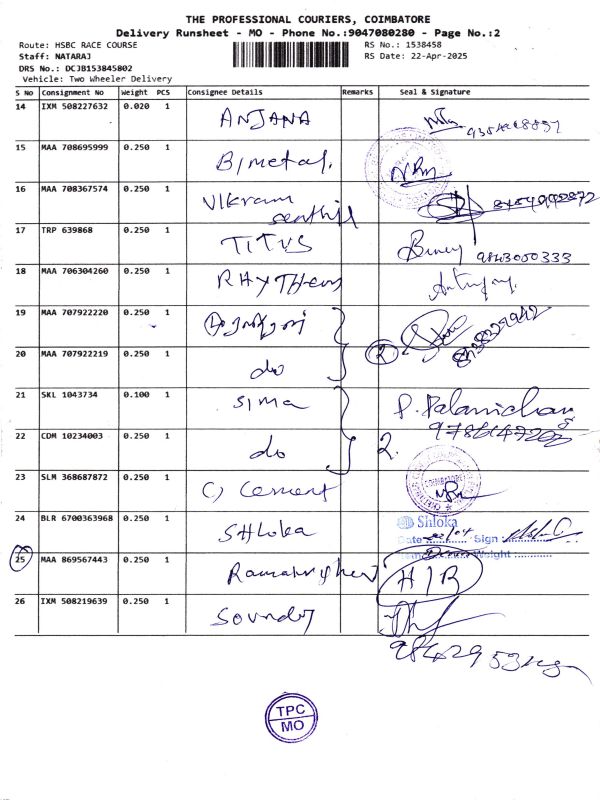 THE PROFESSIONAL COURIERS, COIMBATORE
Delivery Runsheet - MO - Phone No.:9047080280 - Page No.:2
Route: HSBC RACE COURSE RS No.: 1538458
Staff: NATARAJ RS Date: 22-Apr-2025
DRS No.: DCJB153845802
Vehicle: Two Wheeler Delivery
S No Consignment No Weight PCS Consignee Details Remarks Seal & Signature
14 IXM 508227632 0.020 1 ANJANA
15 MAA 708695999 0.250 1 Bimetal.
16 MAA 708367574 0.250 1 Vikram
senthil
17 TRP 639868 0.250 1 TITUS 9843000333
18 MAA 706304260 0.250 1
19 MAA 707922220 0.250 1
20 MAA 707922219 0.250 1 do 2
21 SKL 1043734 0.100 1 Sima
22 CDM 10234003 0.250 1 do 2.
23 SLM 368687872 0.250 1 Cement
24 BLR 6700363968 0.250 1 SHLoka
Shloka
Date 22/04 Sign :
Weight
25 MAA 869567443 0.250 1 H/B
26 IXM 508219639 0.250 1
TPC
MO